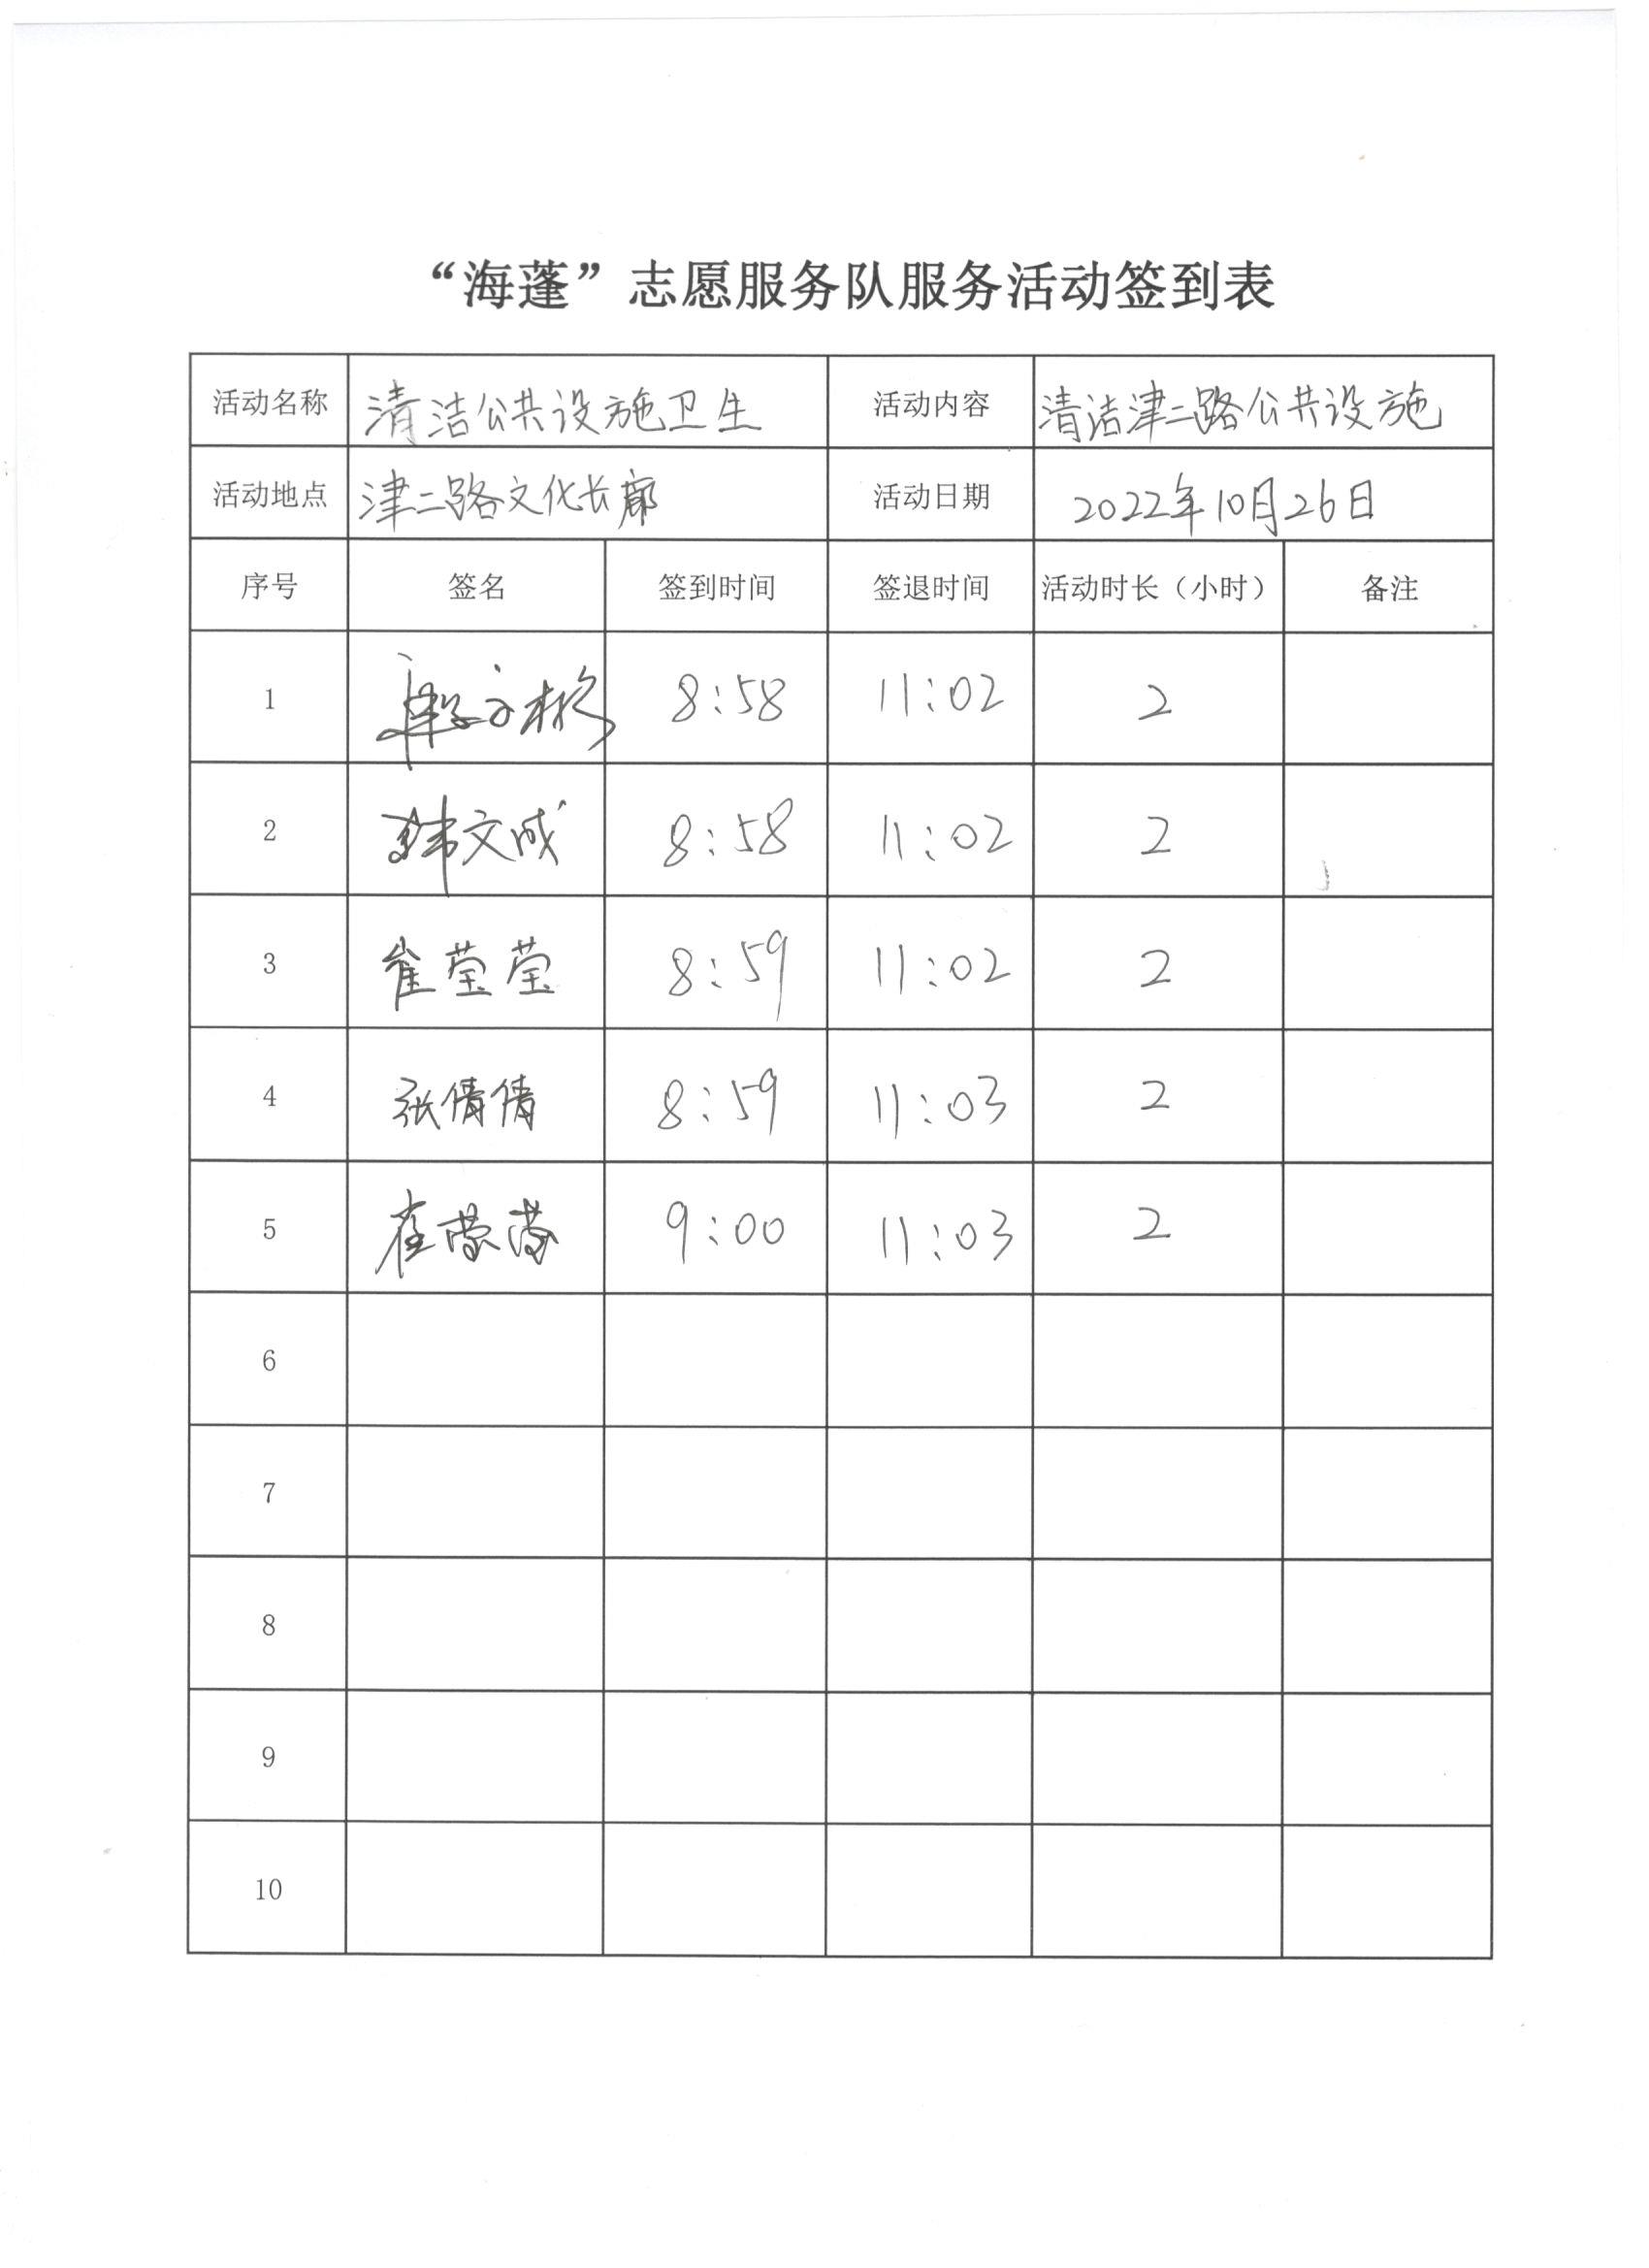 “海蓬”志愿服务队服务活动签到表
活动名称 清洁公共设施卫生 活动内容 清洁津二路公共设施
活动地点 津二路文化长廊 活动日期 2022年10月26日
序号 签名 签到时间 签退时间 活动时长（小时） 备注
1 8:58 11:02 2
2 韩文成 8:58 11:02 2
3 崔莹莹 8:59 11:02 2
4 张倩倩 8:59 11:03 2
5 崔蒙蒙 9:00 11:03 2
6
7
8
9
10